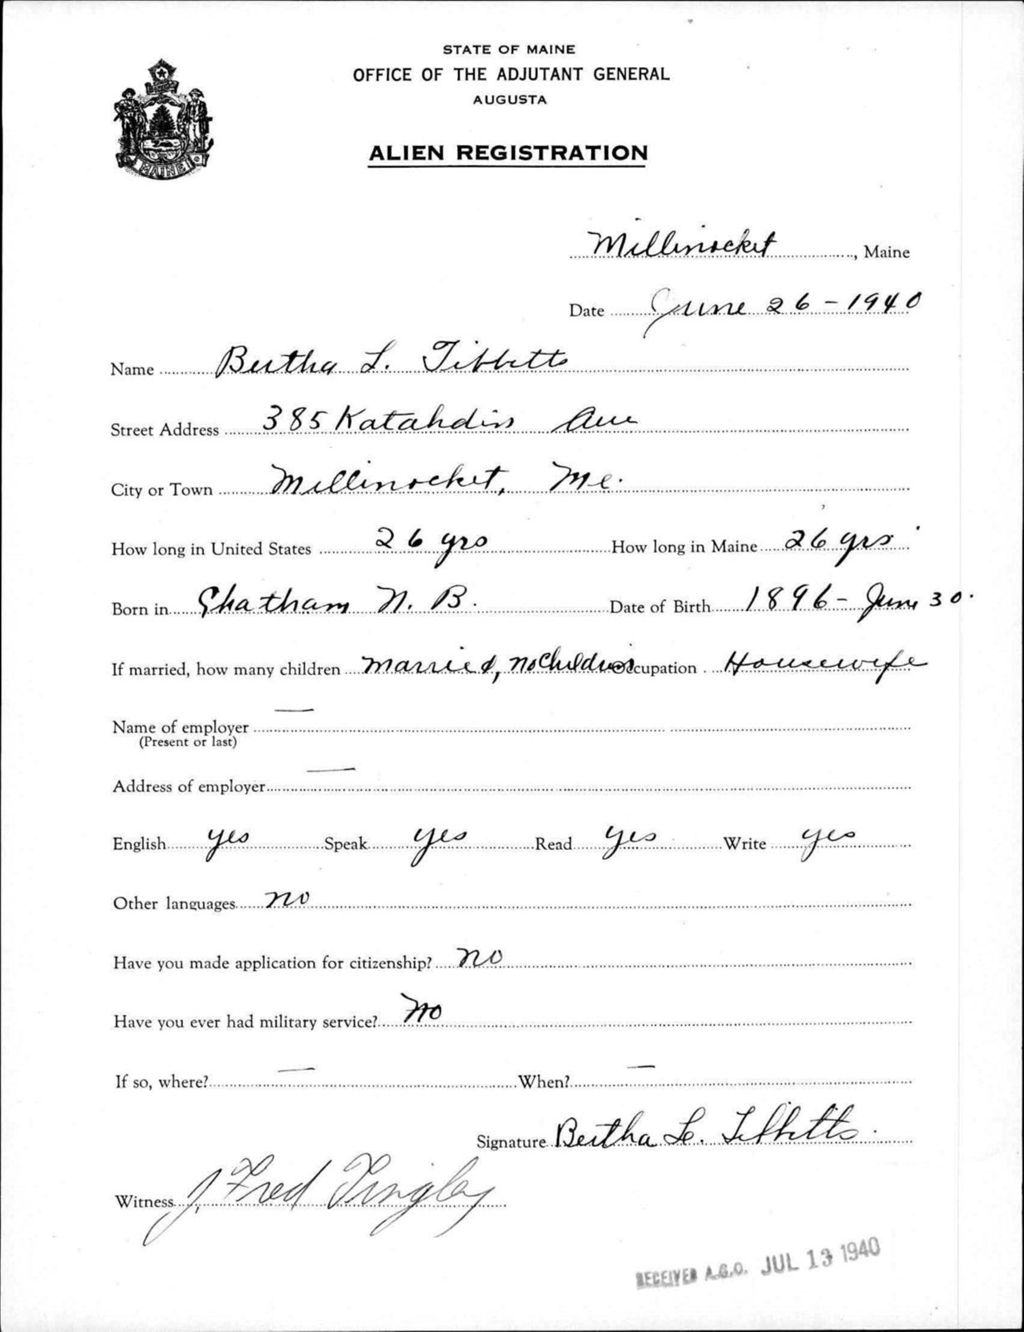 STATE OF MAINE
OFFICE OF THE ADJUTANT GENERAL
AUGUSTA
ALIEN REGISTRATION
MAINE
Millinocket, Maine
Date June 26 - 1940
Name Bertha L. Tibbetts
Street Address 385 Katahdin Ave
City or Town Millinocket, Me.
How long in United States 26 yrs How long in Maine 26 yrs
Born in Chatham N. B. Date of Birth 1896 - June 30.
If married, how many children Married, no Children Occupation Housewife
Name of employer —
(Present or last)
Address of employer —
English yes Speak yes Read yes Write yes
Other languages no
Have you made application for citizenship? no
Have you ever had military service? No
If so, where? — When? —
Signature Bertha L. Tibbetts.
Witness J. Fred Tingley
RECEIVED A.G.O. JUL 13 1940